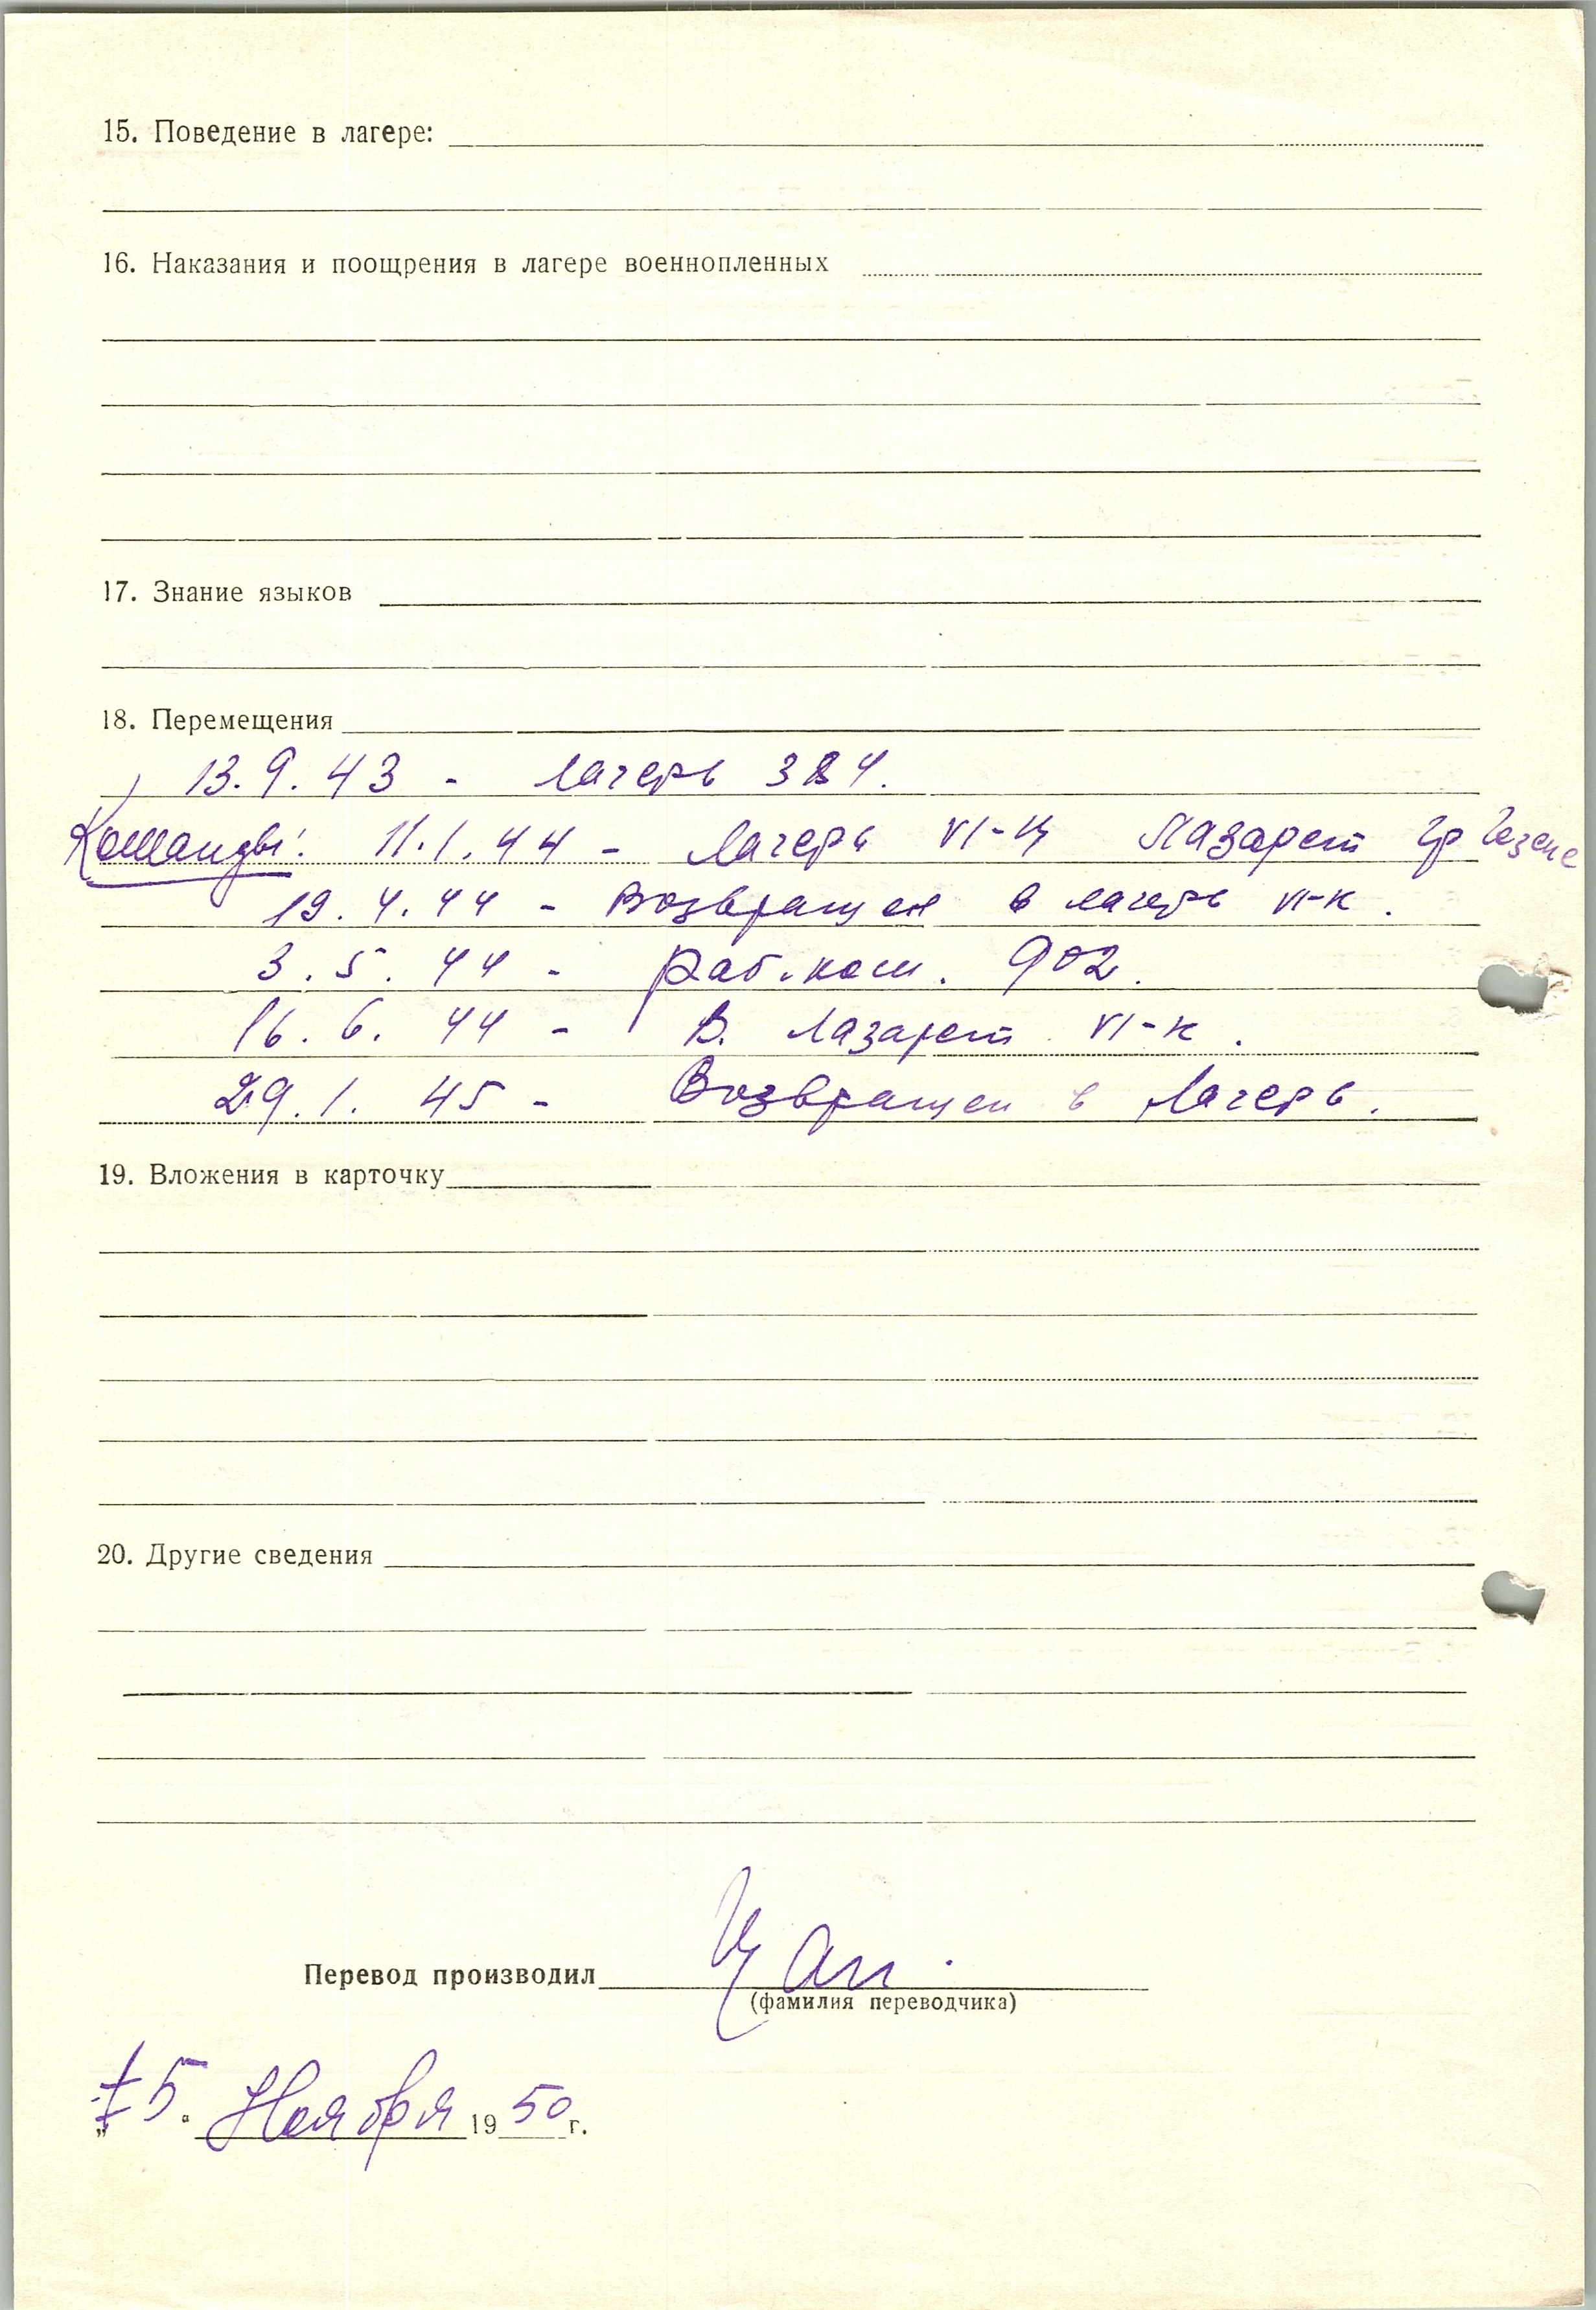 15. Поведение в лагере:
16. Наказания и поощрения в лагере военнопленных
17. Знание языков
18. Перемещения
13.9.43 - лагерь
Команды: 11.1.44 - Лагерь VI-Ц Лазарет гр Гезепе
19.4.44 - Возвращен в лагерь VI-К.
3.5.44 - Раб.ком. 902.
16.6.44 - В. Лазарет VI-К.
29.1.45 - Возвращен в Лагерь.
19. Вложения в карточку
20. Другие сведения
Перевод производил
(фамилия переводчика)
„ 5 “ Ноября 1950 г.